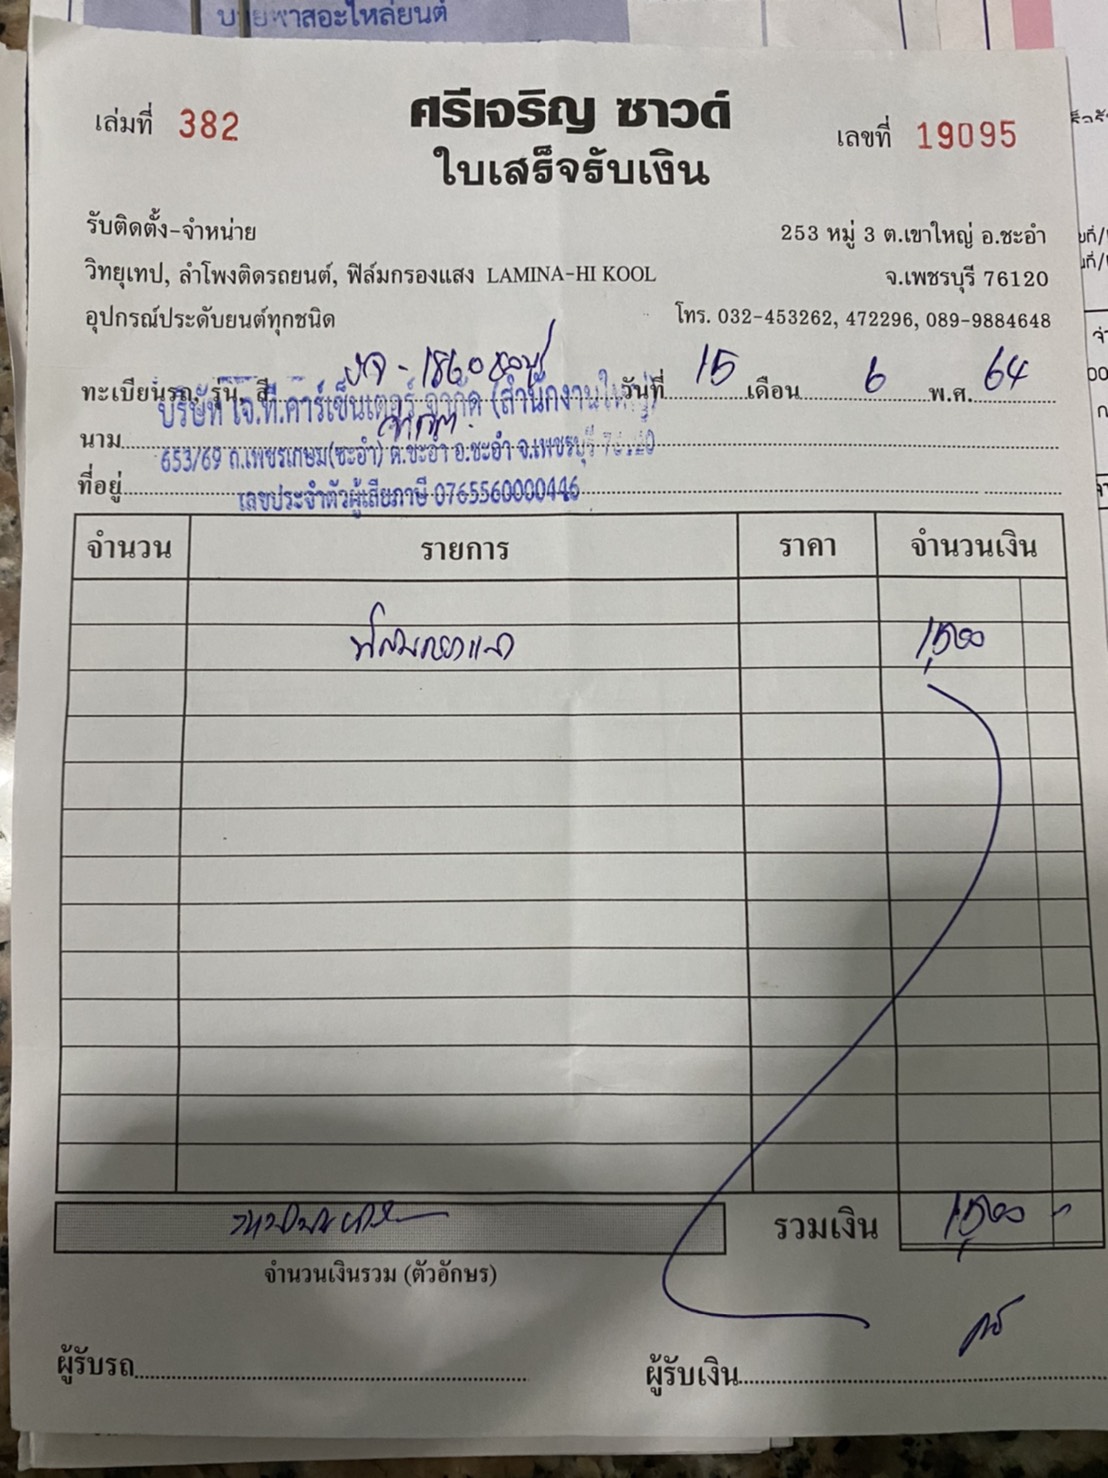 บายพาสอะไหล่ยนต์
เล่มที่ 382
ศรีเจริญ ซาวด์
เลขที่ 19095
ใบเสร็จรับเงิน
รับติดตั้ง-จำหน่าย
253 หมู่ 3 ต.เขาใหญ่ อ.ชะอำ
วิทยุเทป, ลำโพงติดรถยนต์, ฟิล์มกรองแสง LAMINA-HI KOOL
จ.เพชรบุรี 76120
อุปกรณ์ประดับยนต์ทุกชนิด
โทร. 032-453262, 472296, 089-9884648
ทะเบียนรถ, รุ่น, สี
วันที่ 15 เดือน 6 พ.ศ. 64
บริษัท โจ.ที.คาร์เซ็นเตอร์ จำกัด (สำนักงานใหญ่)
นาม
653/69 ถ.เพชรเกษม(ชะอำ) ต.ชะอำ อ.ชะอำ จ.เพชรบุรี 76120
ที่อยู่
เลขประจำตัวผู้เสียภาษี 0765560000446
จำนวน รายการ ราคา จำนวนเงิน
ฟิล์มกรองแสง 1,500
รวมเงิน 1,500 -
จำนวนเงินรวม (ตัวอักษร)
ผู้รับรถ
ผู้รับเงิน